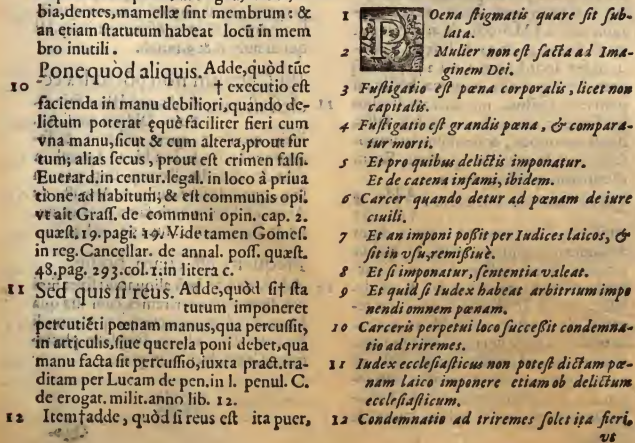 bia,dentes,mamellæ sint membrum: &
an etiam statutum habeat locū in mem
bro inutili.
Pone quòd aliquis. Adde, quòd tūc
10 † executio est
facienda in manu debiliori, quando de-
lictum poterat equè faciliter fieri cum
vna manu, sicut & cum altera, prout fur
tum; alias secus, prout est crimen falsi.
Euerard. in centur. legal. in loco à priua
tione ad habitum; & est communis opi.
vt ait Grass. de communi opin. cap. 2.
quæst. 19. pagi. 19. Vide tamen Gomes.
in reg. Cancellar. de annal. poss. quæst.
48, pag. 293. col. 1. in litera c.
11 Sed quis si reus. Adde, quòd si† sta
tutum imponeret
percutiēti pœnam manus, qua percussit,
in articulis, siue querela poni debet, qua
manu facta sit percussio, iuxta pract. tra-
ditam per Lucam de pen. in l. penul. C.
de erogat. milit. anno lib. 12.
12 Item† adde, quòd si reus est ita puer,
1 POena stigmatis quare sit sub-
lata.
2 Mulier non est facta ad Ima-
ginem Dei.
3 Fustigatio est pœna corporalis, licet non
capitalis.
4 Fustigatio est grandis pœna, & compara-
tur morti.
5 Et pro quibus delictis imponatur.
Et de catena infami, ibidem.
6 Carcer quando detur ad pœnam de iure
ciuili.
7 Et an imponi possit per Iudices laicos, &
sit in vsu, remissiuè.
8 Et si imponatur, sententia valeat.
9 Et quid si Iudex habeat arbitrium impo
nendi omnem pœnam.
10 Carceris perpetui loco successit condemna-
tio ad triremes.
11 Iudex ecclesiasticus non potest dictam pœ-
nam laico imponere etiam ob delictum
ecclesiasticum.
12 Condemnatio ad triremes solet ita fieri,
vt